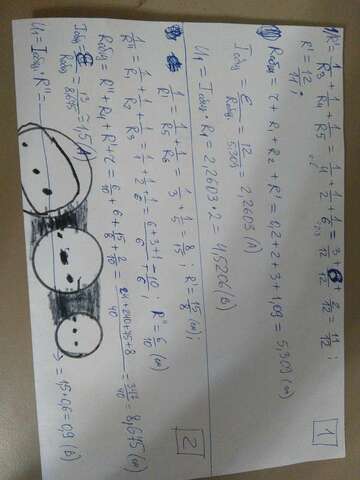 1
1/R' = 1/R3 + 1/R4 + 1/R5 = 1/4 + 1/2 + 1/6 = 3/12 + 6/12 + 2/12 = 11/12 ;
R' = 12/11 ;
Rобщ = r + R1 + R2 + R' = 0,2 + 2 + 3 + 1,09 = 5,309 (Ом)
Iобщ = ℰ/Rобщ = 12/5,309 = 2,2603 (А)
U1 = Iобщ · R1 = 2,2603 · 2 = 4,5206 (В)
2
1/R' = 1/R5 + 1/R6 = 1/3 + 1/5 = 8/15 ; R' = 15/8 (Ом) ;
1/R'' = 1/R1 + 1/R2 + 1/R3 = 1/1 + 1/2 + 1/6 = 6+3+1/6 = 10/6 ; R'' = 6/10 (Ом)
Rобщ = R'' + R4 + R' + r = 6/10 + 6 + 15/8 + 2/10 = 24+240+75+8/40 = 347/40 = 8,675 (Ом)
Iобщ = ℰ/Rобщ = 13/8,675 = 1,5 (А)
U1 = Iобщ · R'' = = 1,5 · 0,6 = 0,9 (В)